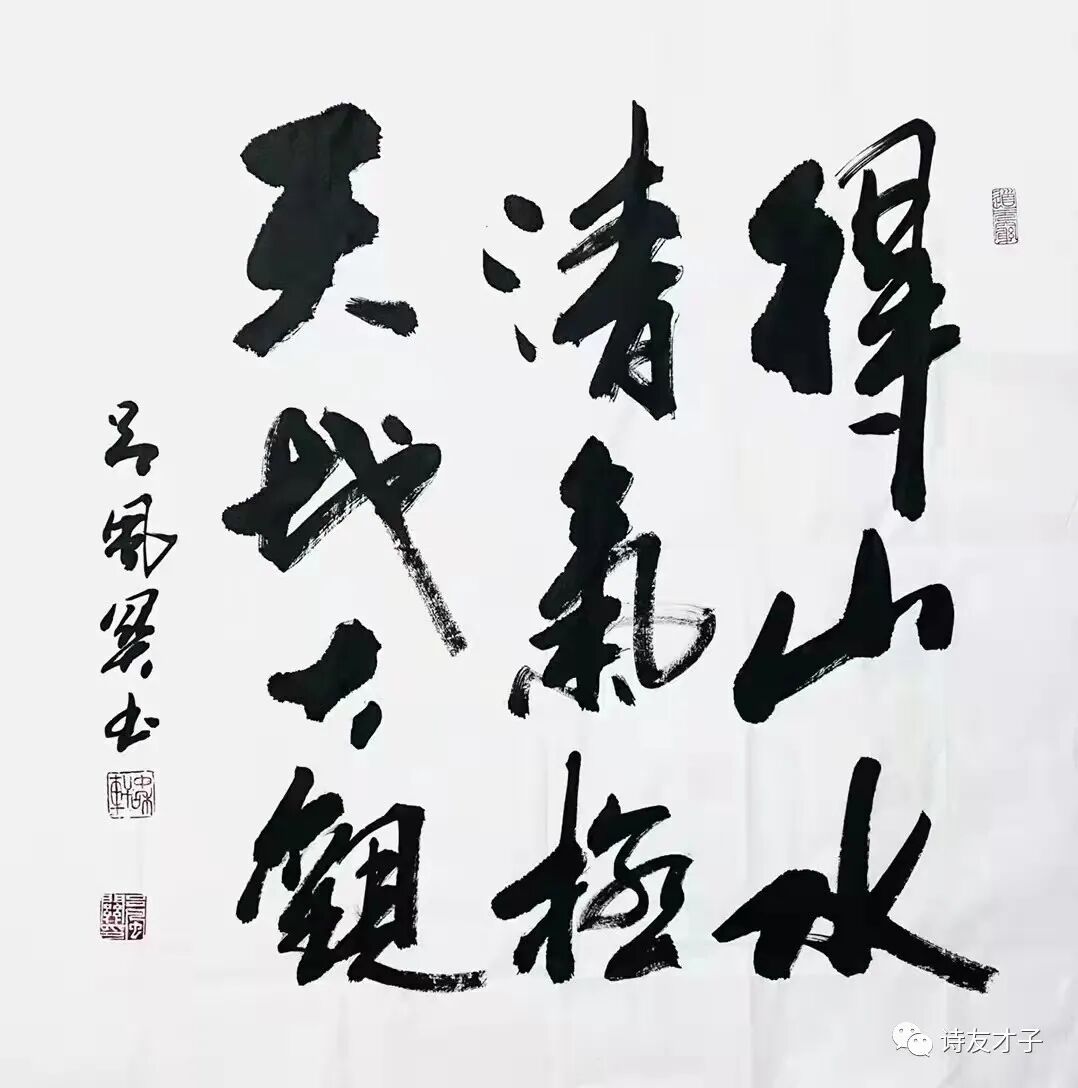 得山水
清氣極
天地大觀
呂風翼书
诗友才子